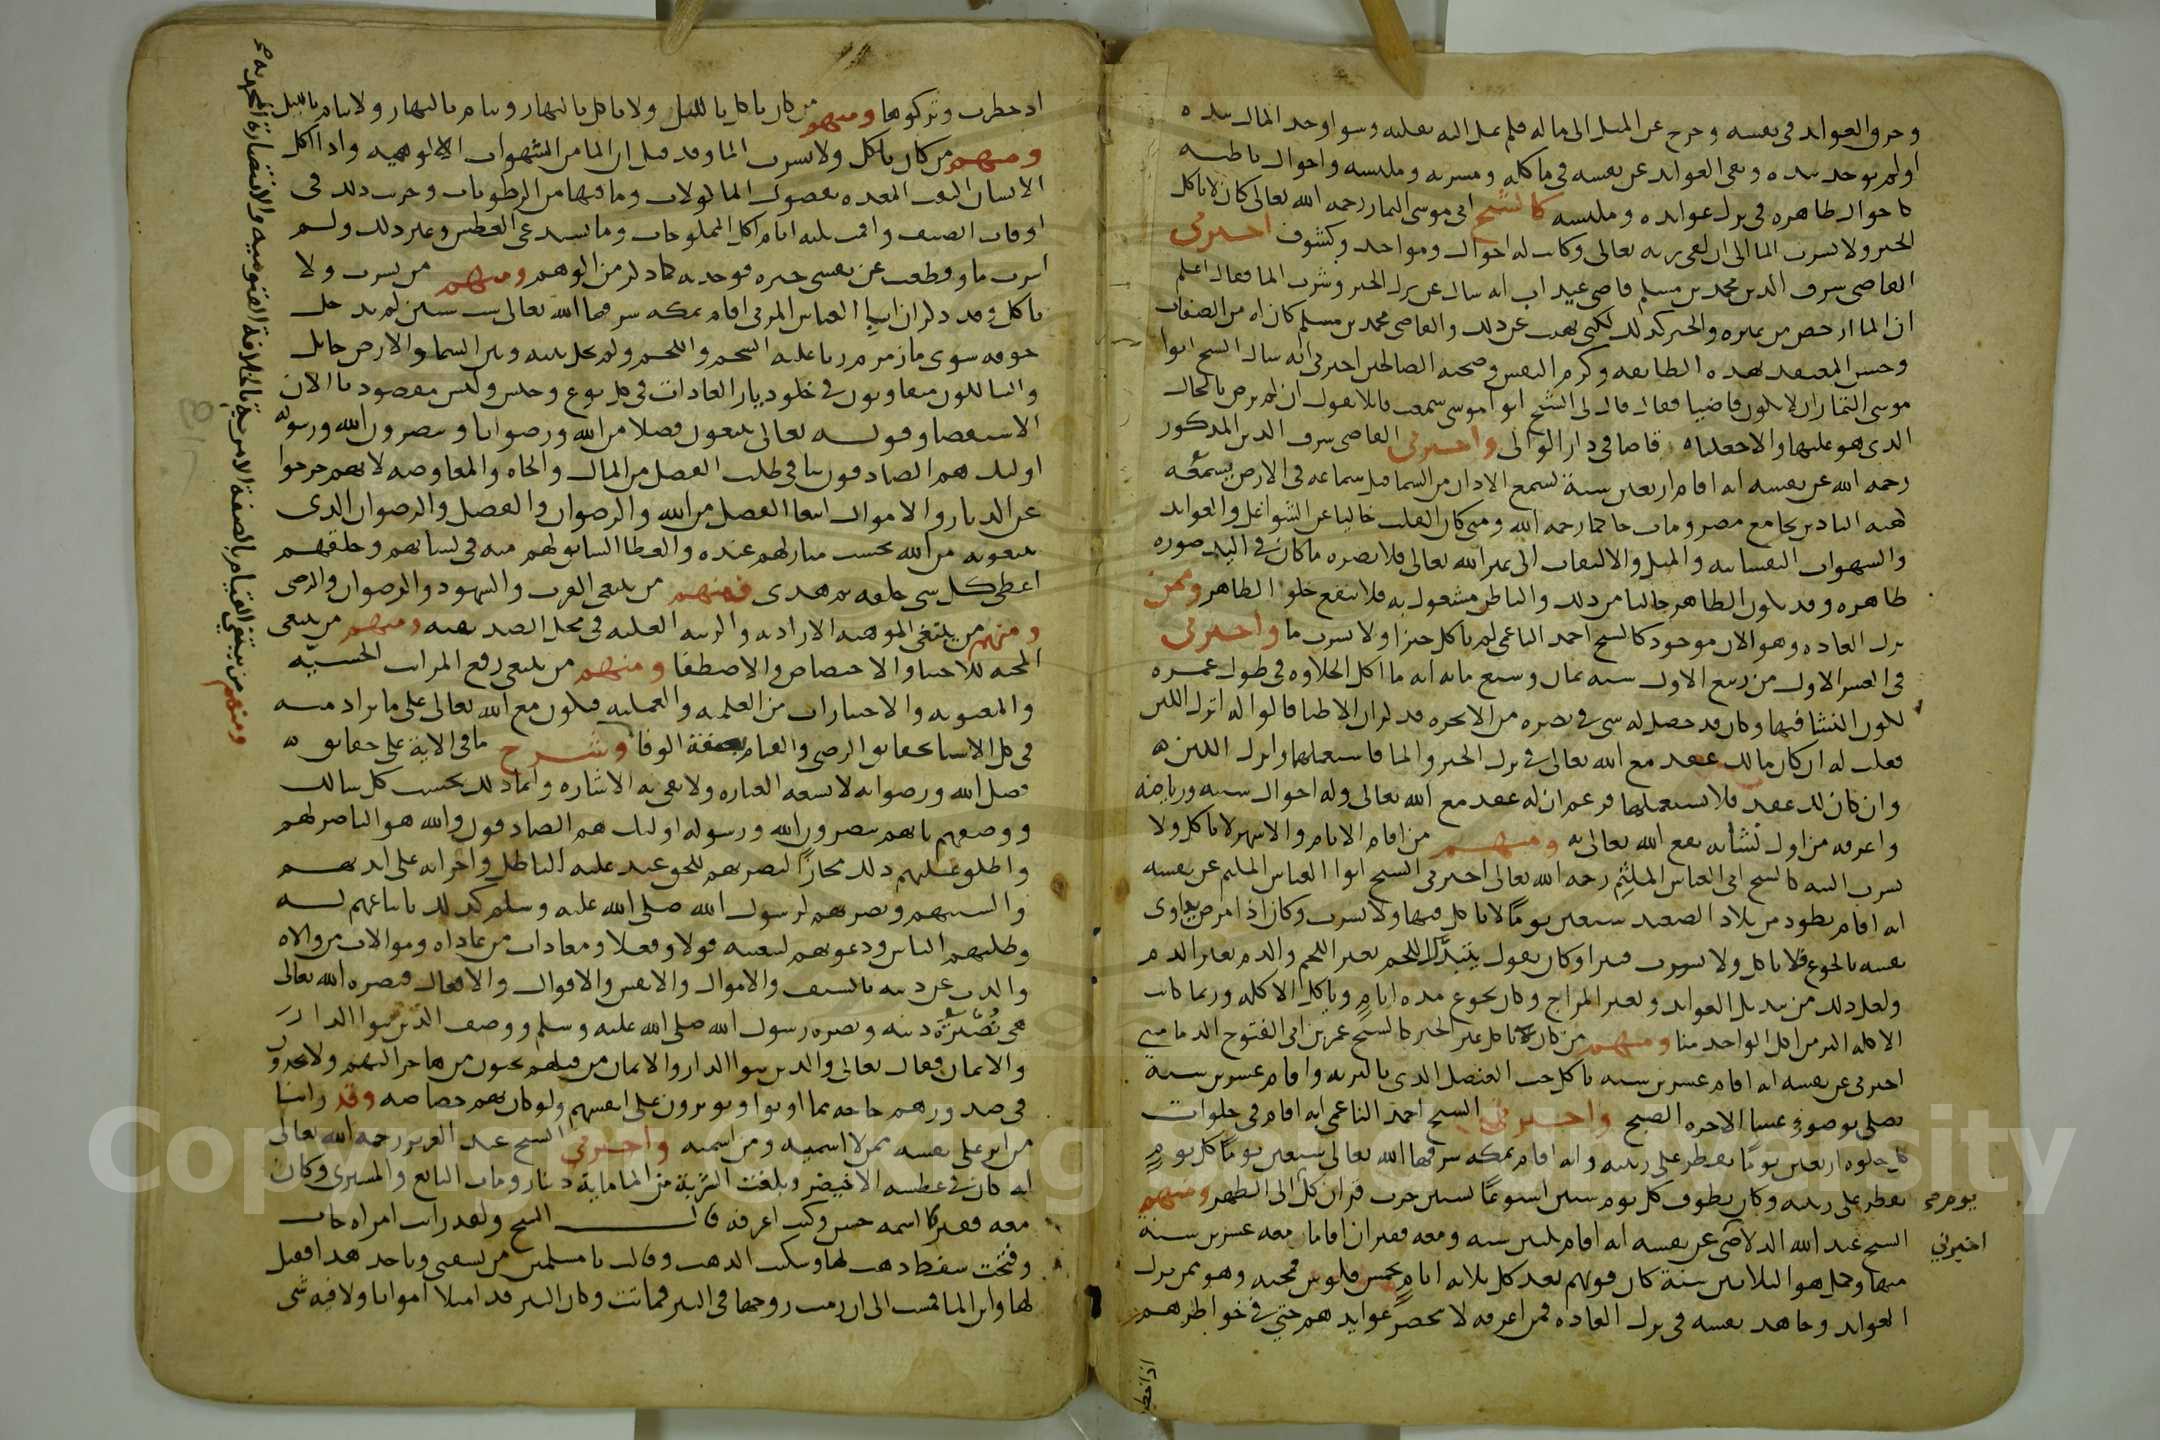 وخرق العوايد في نفسه وخرج عن الميل الى ماله فلم يمل اليه بقلبه وسوا وجد المال بيده
اولم يوجد بيده ونفى العوايد عن نفسه في ماكله ومشربه وملبسه واحوال باطنه
كاحوال ظاهره في ترك عوايده وملبسه كالشيخ ابي موسى التمار رحمه الله تعالى كان لا ياكل
الخبز ولا يشرب الما الى ان لقي ربه تعالى وكانت له احوال ومواجد وكشوف اخبرني
القاضي شرف الدين محمد بن مسلم قاضي عيداب انه سال عن ترك الخبز وشرب الما فقال اعلم
ان الما ارخص من غيره والخبز كذلك لكني نهيت عن ذلك والقاضي محمد بن مسلم كان له من الصفات
وحسن المعتقد لهذه الطايفه وكرم النفس وصحبة الصالحين اخبرني انه سال الشيخ ابوا
موسى التمار ان لا يكون قاضيا فقال قال لي الشيخ ابوا موسى سمعت قايلا يقول ان لم يرض بالحال
الذي هو عليها والا جعلناه قاضا في دار الوالي واخبرني القاضي شرف الدين المذكور
رحمه الله عن نفسه انه اقام اربعين سنة لسمع الاذان من السما قبل سماعه في الارض يسمعه
لهبه النادين بجامع مصر ومات حاكما رحمه الله ومتى كان القلب خاليا عن الشواغل والعوايد
والشهوات النفسانيه والميل والالتفات الى غير الله تعالى فلا يضره ما كان في اليد صوره
ظاهره وقد يكون الظاهر خاليا من ذلك والباطن مشغول به فلا ينفع خلو الظاهر وممن
ترك العاده وهو الان موجود كالشيخ احمد الناعمي لم ياكل خبزا ولا يشرب ما واخبرني
في العشر الاول من ربيع الاول سنه ثمان وسبع مايه انه ما اكل الحلاوه في طول عمره
لكون النشا فيها وكان قد حصل له شي في بصره من الابخره قد ذكر ان الاطبا قالوا له اترك اللبن
فقلت له ان كان مالك عقد مع الله تعالى في ترك الخبز والما فاستعملها واترك اللبن
وان كان لك عقد فلا تستعملها فزعم ان له عقد مع الله تعالى وله احوال سنيه ورياضه
واعرفه من اول نشاته نفع الله تعالى به ومنهم من اقام الايام والاشهر لا ياكل ولا
يشرب البته كالشيخ ابي العباس الملثم رحمه الله تعالى اخبرني الشيخ ابوا العباس الملثم عن نفسه
انه اقام بطود من بلاد الصعيد سبعين يومًا لا ياكل فيها ولا يشرب وكان اذا مرض يداوى
نفسه بالجوع فلا ياكل ولا يشرب فيبرا وكان يقول يتبدّل اللحم بغير اللحم والدم بغير الدم
ولعل ذلك من تبديل العوايد وتغير المزاج وكان يجوع مده ايام وياكل الاكله وربما كانت
الاكله اكثر من اكل الواحد منا ومنهم من كان لا ياكل غير الخبز كالشيخ عمر بن ابي الفتوح الدماميني
اخبرني عن نفسه انه اقام عشرين سنه ياكل حب الفنصل الذي بالبريه واقام عشرين سنة
يصلي بوضو عشا الاخره الصبح واخبرني الشيخ احمد الناعمي انه اقام في خلوات
كل خلوه اربعين يومًا يفطر على ربيبه وانه اقام بمكه شرفها الله تعالى سبعين يومًا كل يوم
يفطر على ربيبه وكان يطوف كل يوم ستين اسبوعًا لستين حزب قران كل الى الظهر ومنهم
الشيخ عبد الله الدلاصي عن نفسه انه اقام ثلثين سنه ومعه فقيران اقاما معه عشرين سنة
منها وكمل هو الثلاثين سنة كان قوتهم بعد كل ثلاثه ايام بخمس فلوس فحبه وهو ممن ترك
العوايد وجاهد نفسه في ترك العاده فمن اعرفه لا تحصر عوايدهم حتى في خواطرهم
يوم
اخبرني
اذا خطر
اذ خطرت وتركوها ومنهم من كان ياكل بالليل ولا ياكل بالنهار وينام بالنهار ولا ينام بالليل
ومنهم من كان ياكل ولا يشرب الما وقد قيل ان الما من الشهوات الالوهيه واذا اكل
الانسان التفت المعده بفضول الماكولات وما فيها من الرطوبات وجربت ذلك في
اوقات الصيف واقمت ثلثه ايام اكل المملوحات وما يستدعي العطش وغير ذلك ولم
اشرب ما وقطعت عن نفسي خبره فوجدته كما ذكر من الوهم ومنهم من يشرب ولا
ياكل وقد ذكر ان ابا العباس المرفي اقام بمكه شرفها الله تعالى ست سنين لم يدخل
جوفه سوى ماء زمزم ربا عليه الشحم واللحم ولم يحل بينه وبين السما والارض حايل
والسالكون متفاوتون في خلو ديار العادات في كل نوع وجنس وليس مقصودنا الان
الاستقصا وقوله تعالى يبتغون فضلا من الله ورضوانا وينصرون الله ورسوله
اوليك هم الصادقون بنا في طلب الفضل من المال والجاه والمعاوضه لانهم خرجوا
عن الديار والاموال ابتغا الفضل من الله والرضوان والفضل والرضوان الذي
يبتغونه من الله بحسب منازلهم عنده والعطا السابق لهم منه في نشاتهم وخلقهم
اعطى كل شي خلقه ثم هدى فمنهم من يبتغي القرب والشهود والرضوان والرضى
ومنهم من يبتغي الموهبه الاراديه والرتبه العليه في محل الصديقيه ومنهم من يبتغي
المحبه للاجتبا والاختصاص والاصطفا ومنهم من يبتغي رفع المراتب الحسيّه
والمعنويه والاختيارات من العلميه والعمليه فيكون مع الله تعالى على ما يراد منه
في كل الاشيا بحقايق الرضى والقيام بصفة الوفا وشرح ما في الاية على حقايق
فضل الله ورضوانه لا تسعه العباره ولا تفي به الاشاره وانما ذلك بحسب كل سالك
ووصفهم بانهم ينصرون الله ورسوله اوليك هم الصادقون والله هو الناصر لهم
واطلق عليهم ذلك مجازًا لنصرهم للحق عبد غلبه الباطل واجراه على ايديهم
والسنتهم ونصرهم لرسول الله صلى الله عليه وسلم كذلك باتباعهم له
وطلبهم الناس ودعوتهم لنفسه قولا وفعلا ومعادات من عاداه وموالات من والاه
والذب عن دينه بالسيف والاموال والانفس والاقوال والافعال فنصره الله تعالى
هي نُصْرَة دينه ونصره رسول الله صلى الله عليه وسلم ووصف الذين تبوا الدار
والايمان فقال تعالى والذين تبوا الدار والايمان من قبلهم يحبون من هاجر اليهم ولا يجدون
في صدورهم حاجه مما اوتوا ويوثرون على انفسهم ولو كان بهم خصاصه وقد راينا
من اثر على نفسه ممن لا اسميه ومن اسميه واخبرني الشيخ عبد العزيز رحمه الله تعالى
انه كان في عطسه الاخيضر وبلغت الشربة من الما مايه دينار ومات البايع والمشترى وكان
معه فقير كا اسمه حسن وكنت اعرفه قال الشيخ ولقد رايت امراه جات
وفتحت سفط ذهب لها وسكبت الذهب وقالت يا مسلمين من يسقيني وياخذ هذا فقيل
لها واين الما فمشت الى ان رمت روحها في البير فماتت وكان البير قد امتلا امواتا ولا فيه شي
ومنهم من يبتغي القيام بالصفة الامريه بالخلافة القيوميه والانتصاره المحمديه